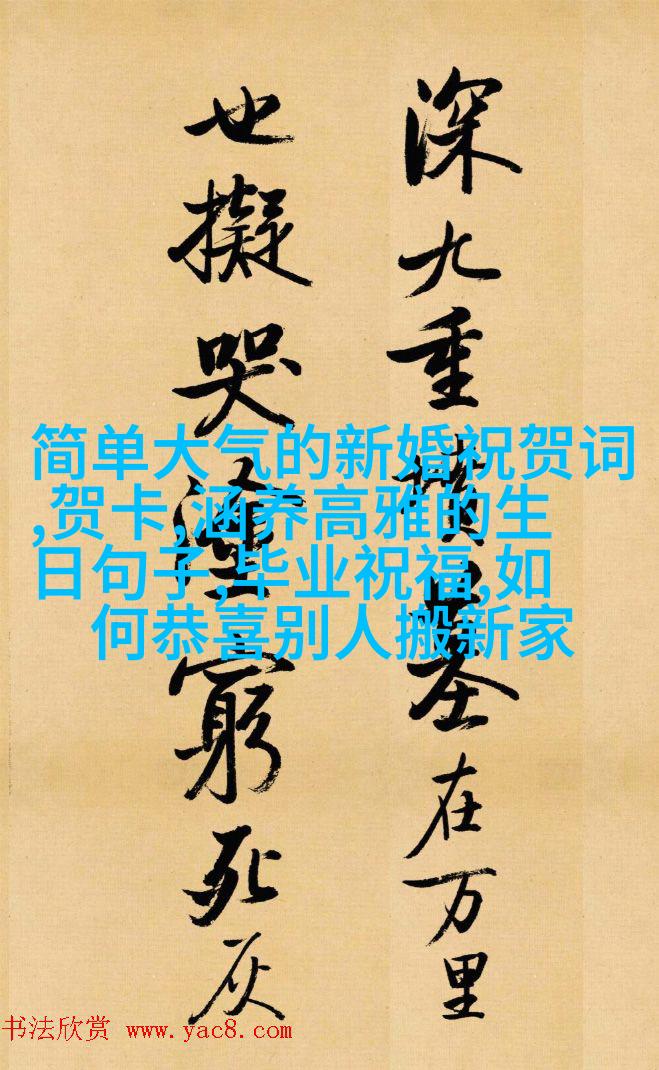 深九重墳墓在万里
也擬哭塗窮死灰
简单大气的新婚祝贺词
,贺卡,涵养高雅的生
日句子,毕业祝福,如
何恭喜别人搬新家
书法欣赏 www.yac8.com